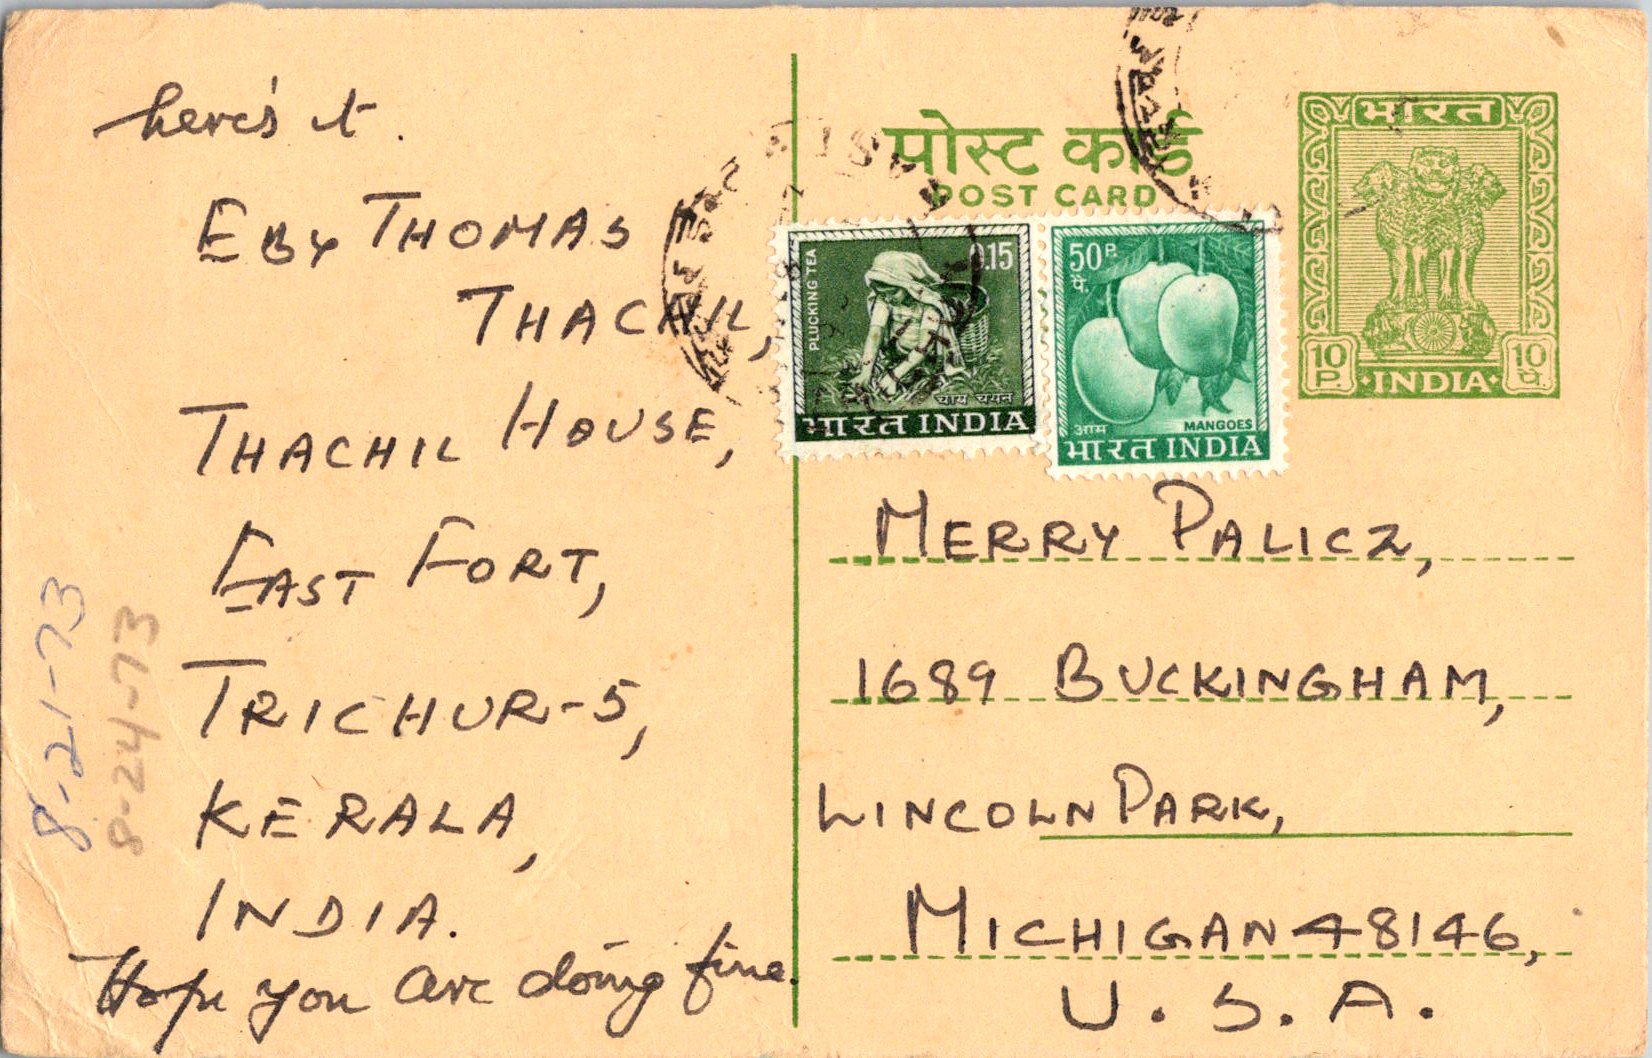 here's it.
EBY THOMAS
THACHIL,
THACHIL HOUSE,
EAST FORT,
TRICHUR-5,
KERALA,
INDIA.
Hope you are doing fine.
8-21-73
8-24-73
पोस्ट कार्ड
POST CARD
PLUCKING TEA
0.15
चाय चयन
भारत INDIA
50 P.
पै.
आम
MANGOES
भारत INDIA
भारत
10 P.
10 पै.
INDIA
MERRY PALICZ,
1689 BUCKINGHAM,
LINCOLN PARK,
MICHIGAN 48146,
U.S.A.